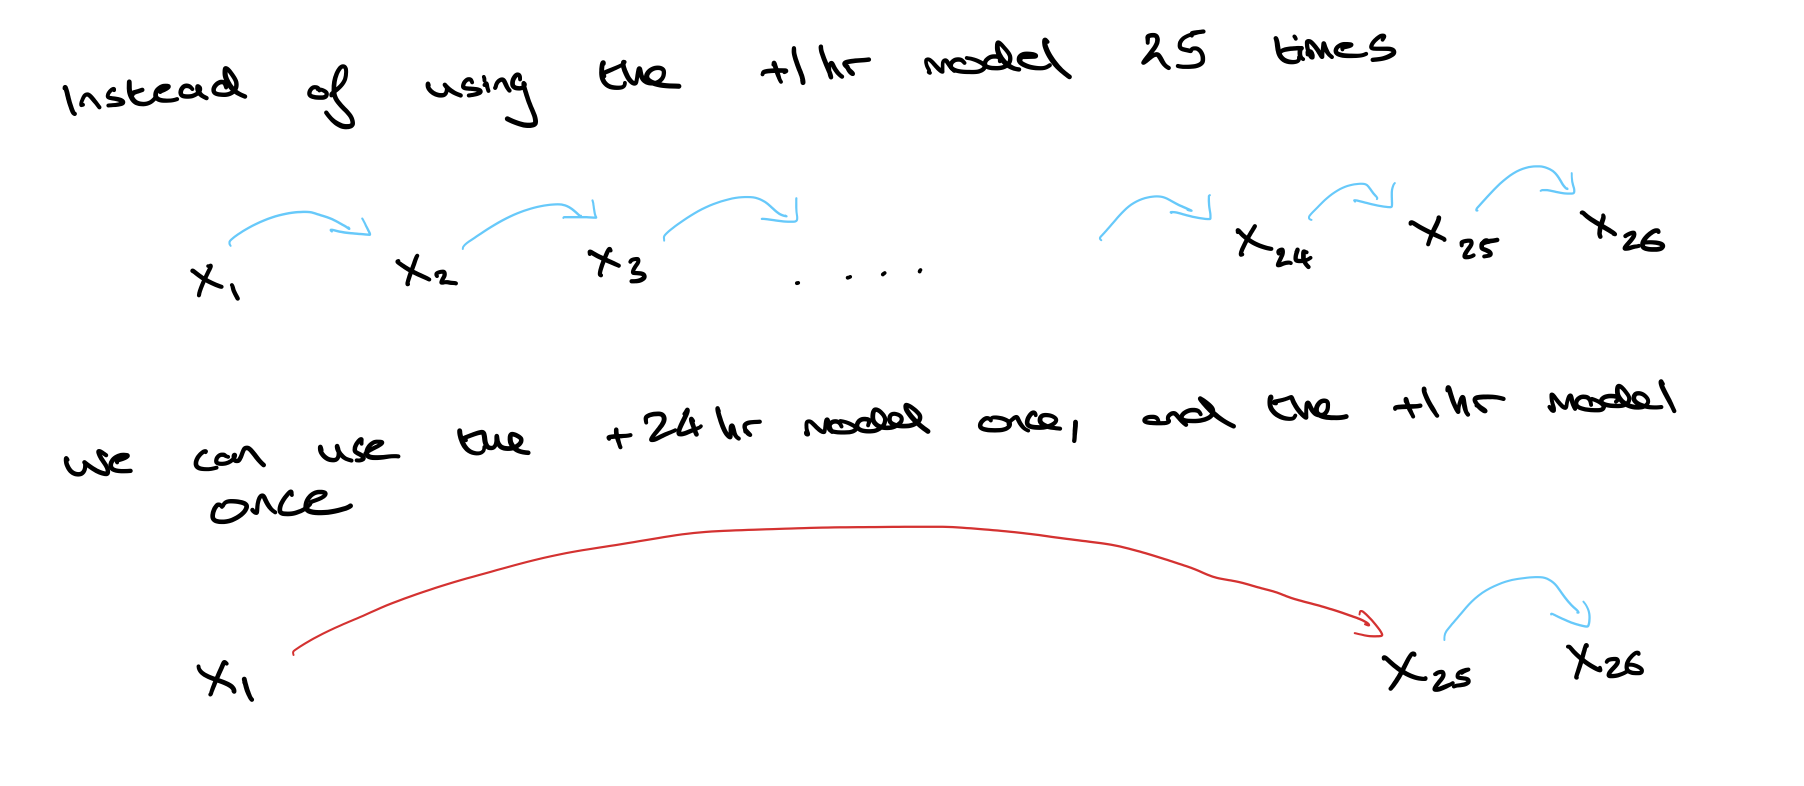 Instead of using the +1hr model 25 times
X₁ X₂ X₃ .... X₂₄ X₂₅ X₂₆
we can use the +24hr model once, and the +1hr model
once
X₁ X₂₅ X₂₆